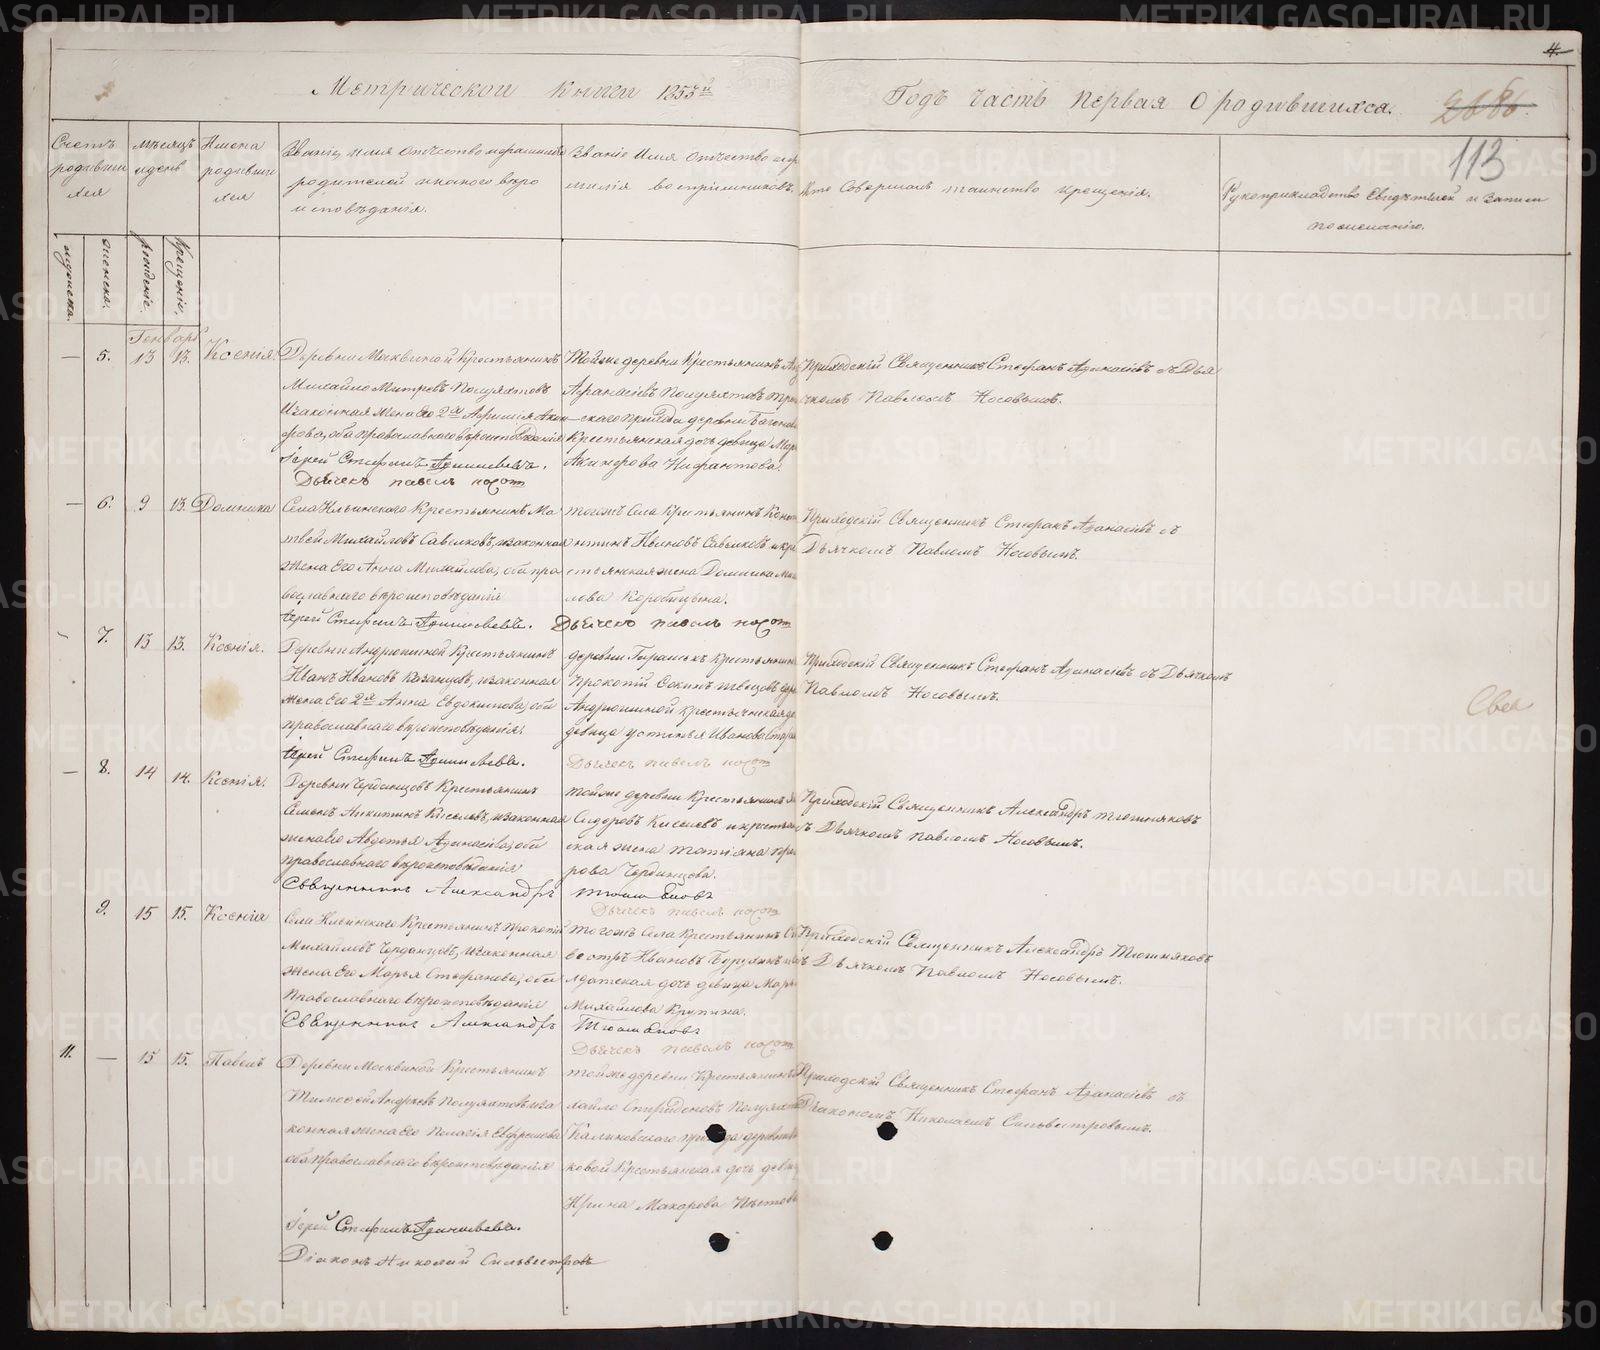 Метрической книги 1853й
Годъ часть первая о родившихся.
4.
2686.
113
Счетъ родивши хся
мѣсяцъ и день
Имена родивши хся
Званіе, имя отчество и фамилія
родителей и какого вѣро
исповѣданія.
Званіе Имя отчество и фа
милія воспріемниковъ.
Кто Совершалъ таинство крещенія.
Рукоприкладство Свидѣтелей и записи
по желанію.
мужска.
женска.
рожденіе.
Крещеніе.
Генварь
— 5. 13 13. Ксенія.
Деревни Москвиной Крестьянинъ
Михайло Митревъ Полуяхтовъ
И законная Жена Его 2я
оба православнаго вѣроисповѣданія
Іерей Стефанъ
Дьячекъ павелъ носов
Той же деревни Крестьянинъ
Афанасіевъ Полуяхтовъ
скаго прихода деревни
Крестьянская дочь девица Мар
Приходскій Священникъ Стефанъ Афанасіевъ съ Дья
чкомъ Павломъ Носовымъ.
— 6. 9 13. Домника
Села Ильинскаго Крестьянинъ Ма
твей Михайловъ Савелковъ, и законная
Жена Его Анна Михайлова, оба пра
вославнаго вѣроисповѣданія
Іерей Стефанъ
Дьячекъ павелъ носов
тогожъ Села Крестьянинъ Конст
антинъ Ивановъ Савелковъ и кре
стьянская жена Домника
лова Коробицына.
Приходскій Священникъ Стефанъ Афанасіевъ съ
Дьячкомъ Павломъ Носовымъ.
7. 13 13. Ксенія.
Деревни Андрюшиной Крестьянинъ
Иванъ Ивановъ Казанцевъ, и законная
жена Его 2я Анна Евдокимова, оба
православнаго вѣроисповѣданія.
Іерей Стефанъ
Дьячекъ павелъ носов
деревни Крестьянинъ
Прокопій
Андрюшиной крестьянская до
девица устинья Иванова
Приходскій Священникъ Стефанъ Афанасіевъ съ Дьячкомъ
Павломъ Носовымъ.
— 8. 14 14. Ксенія.
Деревни Чердынцовъ Крестьянинъ
Семенъ Никитинъ Киселевъ, и законная
жена Его Авдотья Афанасіева, оба
православнаго вѣроисповѣданія
Священникъ Александръ
Дьячекъ павелъ носов
той же деревни Крестьянинъ
Сидоровъ Киселевъ и крестьян
ская жена татіяна
рова Чердынцова.
Приходскій Священникъ Александръ тюшняковъ
съ Дьячкомъ Павломъ Носовымъ.
9. 15 15. Ксенія
Села Ильинскаго Крестьянинъ Прокопій
Михайловъ Чердынцовъ, и законная
жена Его Марья Стефанова, оба
Православнаго вѣроисповѣданія
Священникъ Александръ
Дьячекъ павелъ носов
тогожъ Села Крестьянинъ
Ивановъ
лдатская дочь девица Марья
Михайлова Крутина.
Приходскій Священникъ Александръ Тюшняковъ
съ Дьячкомъ Павломъ Носовымъ.
11. — 15 15. Павелъ
Деревни Москвиной Крестьянинъ
Тимофей Андреевъ Полуяхтовъ и за
конная жена Его Пелагія Ефремова
оба православнаго вѣроисповѣданія
Іерей Стефанъ
Діаконъ Николай Сильвестровъ
той же деревни Крестьянинъ Ми
хайло Спиридоновъ Полуяхтовъ
Калиновскаго прихода деревни
ковой Крестьянская дочь девица
Ирина Макарова
Приходскій Священникъ Стефанъ Афанасіевъ съ
Діакономъ Николаемъ Сильвестровымъ.
METRIKI.GASO-URAL.RU